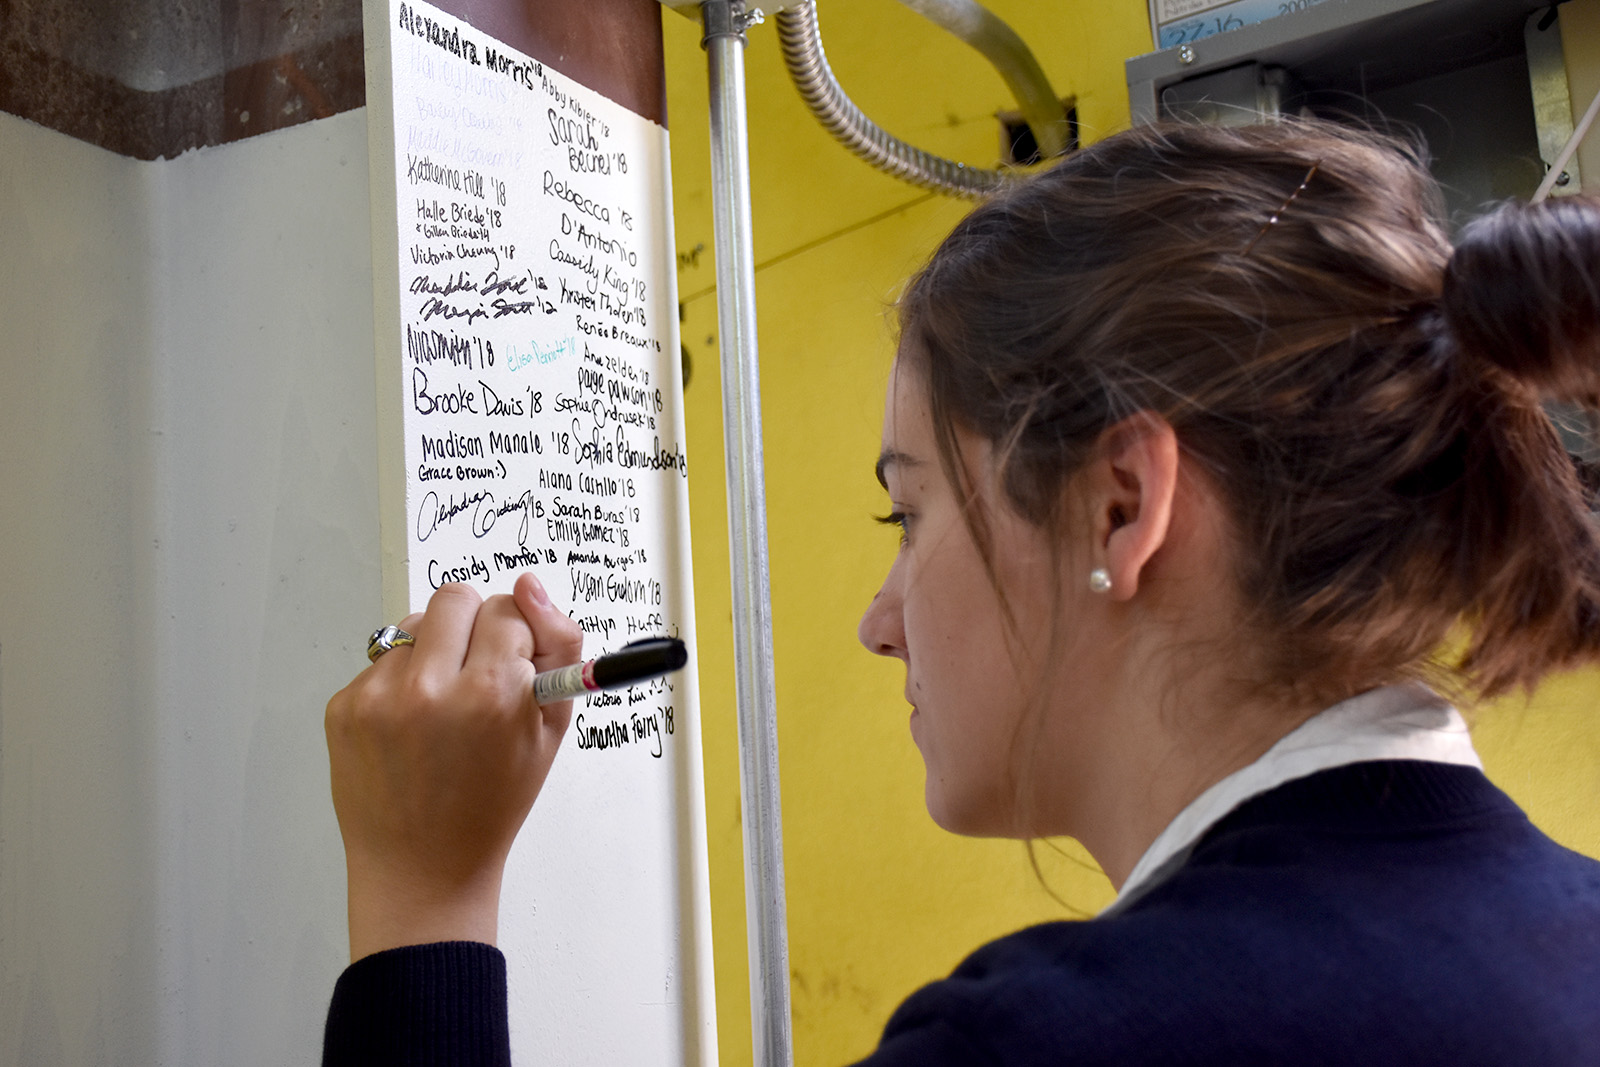 Alexandra Morris '18
Harley Morris
Maddie McGovern '18
Katherine Hill '18
Halle Briede '18
* Gillian Briede '14
Victoria Cheung '18
'18
'12
'18
Brooke Davis '18
Madison Manale '18
Grace Brown :)
'18
Cassidy '18
Abby Kibler '18
Sarah
Becnel '18
Rebecca '18
D'Antonio
Cassidy King '18
Kristen '18
Renée Breaux '18
'18
Anne Zelden '18
Paige Pawson '18
Sophie Ondrusek '18
Sophia Edmundson '18
Alana Castillo '18
Sarah Buras '18
Emily Gomez '18
Amanda Burgos '18
Susan '18
Caitlyn Huff
Victoria Liu ^-^
Samantha Forry '18
27-16
200